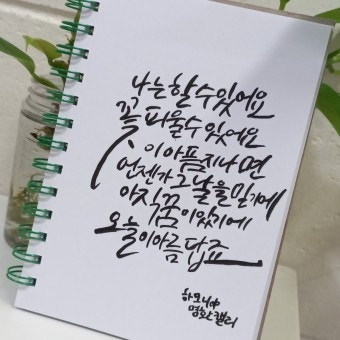 나는 할 수 있어요
꽃 피울 수 있어요
이 아픔 지나면
언젠가 그날을 믿기에
아직 꿈이 있기에
오늘이 아름답죠
하모니中
캘리